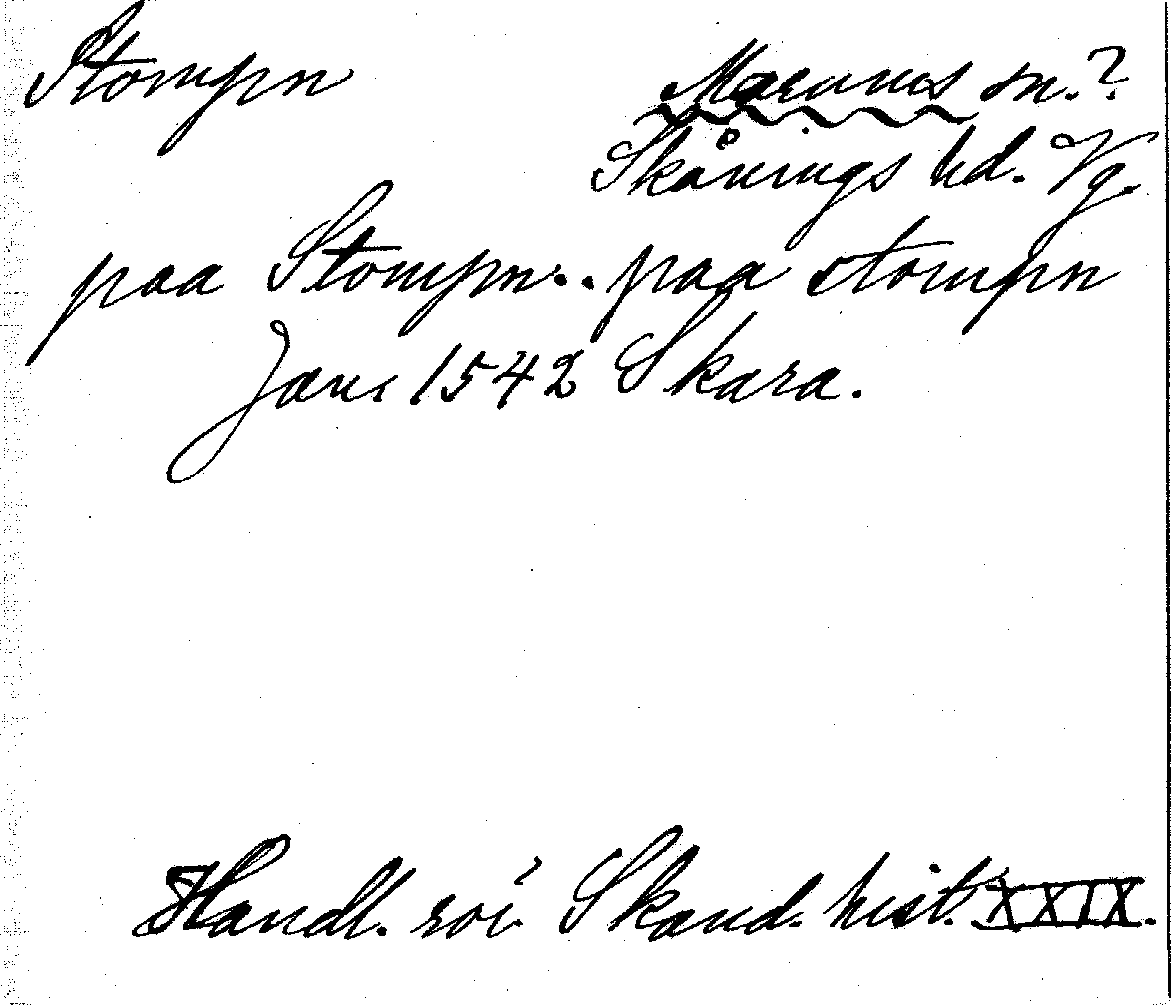 Stompn
Marums sn.?
Skånings hd. Vg.
paa Stompn.. paa stompn
Jans 1542 Skara.
Handl. rör. Skand. hist. XXIX.